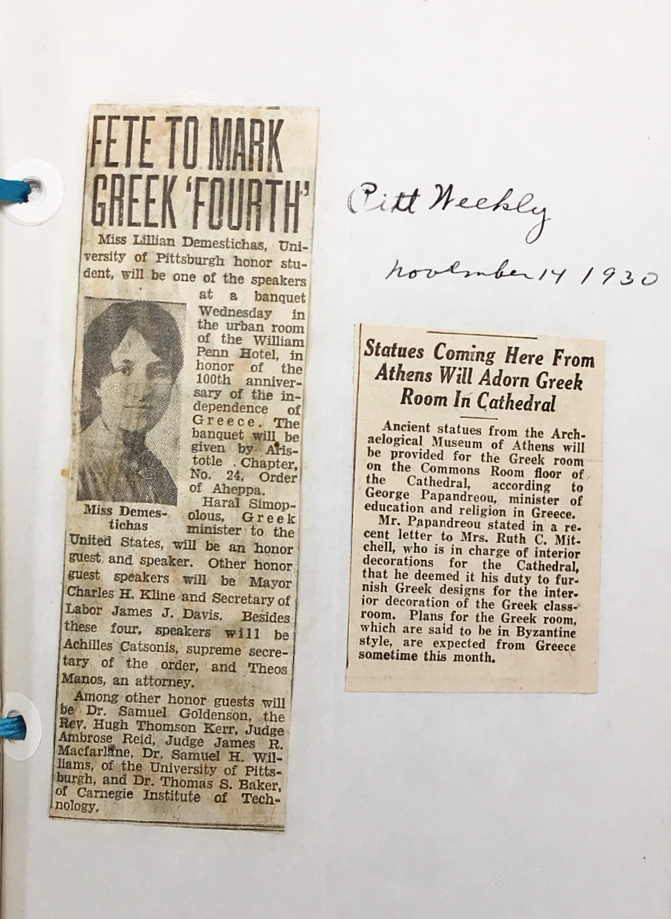 FETE TO MARK
GREEK 'FOURTH'
Miss Lillian Demestichas, Uni-
versity of Pittsburgh honor stu-
dent, will be one of the speakers
at a banquet
Wednesday in
the urban room
of the William
Penn Hotel, in
honor of the
100th anniver-
sary of the in-
dependence of
Greece. The
banquet will be
given by Aris-
totle Chapter,
No. 24, Order
of Aheppa.
Haral Simop-
olous, Greek
minister to the
Miss Demes-
tichas
United States, will be an honor
guest and speaker. Other honor
guest speakers will be Mayor
Charles H. Kline and Secretary of
Labor James J. Davis. Besides
these four, speakers will be
Achilles Catsonis, supreme secre-
tary of the order, and Theos
Manos, an attorney.
Among other honor guests will
be Dr. Samuel Goldenson, the
Rev. Hugh Thomson Kerr, Judge
Ambrose Reid, Judge James R.
Macfarlane, Dr. Samuel H. Wil-
liams, of the University of Pitts-
burgh, and Dr. Thomas S. Baker,
of Carnegie Institute of Tech-
nology.
Pitt Weekly
november 14 1930
Statues Coming Here From
Athens Will Adorn Greek
Room In Cathedral
Ancient statues from the Arch-
aelogical Museum of Athens will
be provided for the Greek room
on the Commons Room floor of
the Cathedral, according to
George Papandreou, minister of
education and religion in Greece.
Mr. Papandreou stated in a re-
cent letter to Mrs. Ruth C. Mit-
chell, who is in charge of interior
decorations for the Cathedral,
that he deemed it his duty to fur-
nish Greek designs for the inter-
ior decoration of the Greek class-
room. Plans for the Greek room,
which are said to be in Byzantine
style, are expected from Greece
sometime this month.